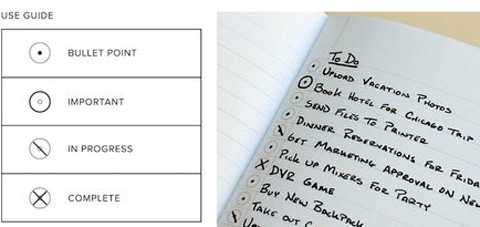 USE GUIDE
BULLET POINT
IMPORTANT
IN PROGRESS
COMPLETE
To Do
UPLOAD VACATION PHOTOS
BOOK HOTEL FOR CHICAGO TRIP
SEND FILES TO PRINTER
DINNER RESERVATIONS FOR FRIDA
GET MARKETING APPROVAL ON NEW
PICK UP MIXERS FOR PARTY
DVR GAME
BUY NEW BACKPACK
TAKE OUT